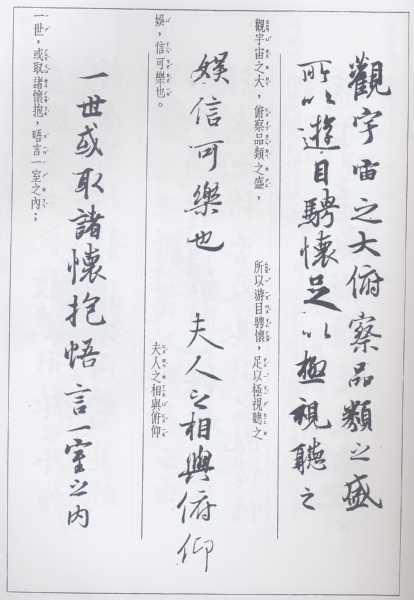 觀宇宙之大俯察品類之盛
所以遊目騁懷足以極視聽之
觀宇宙之大，俯察品類之盛， 所以游目騁懷，足以極視聽之
娛信可樂也 夫人之相與俯仰
娛，信可樂也。 夫人之相與俯仰
一世或取諸懷抱悟言一室之内
一世，或取諸懷抱，晤言一室之內；